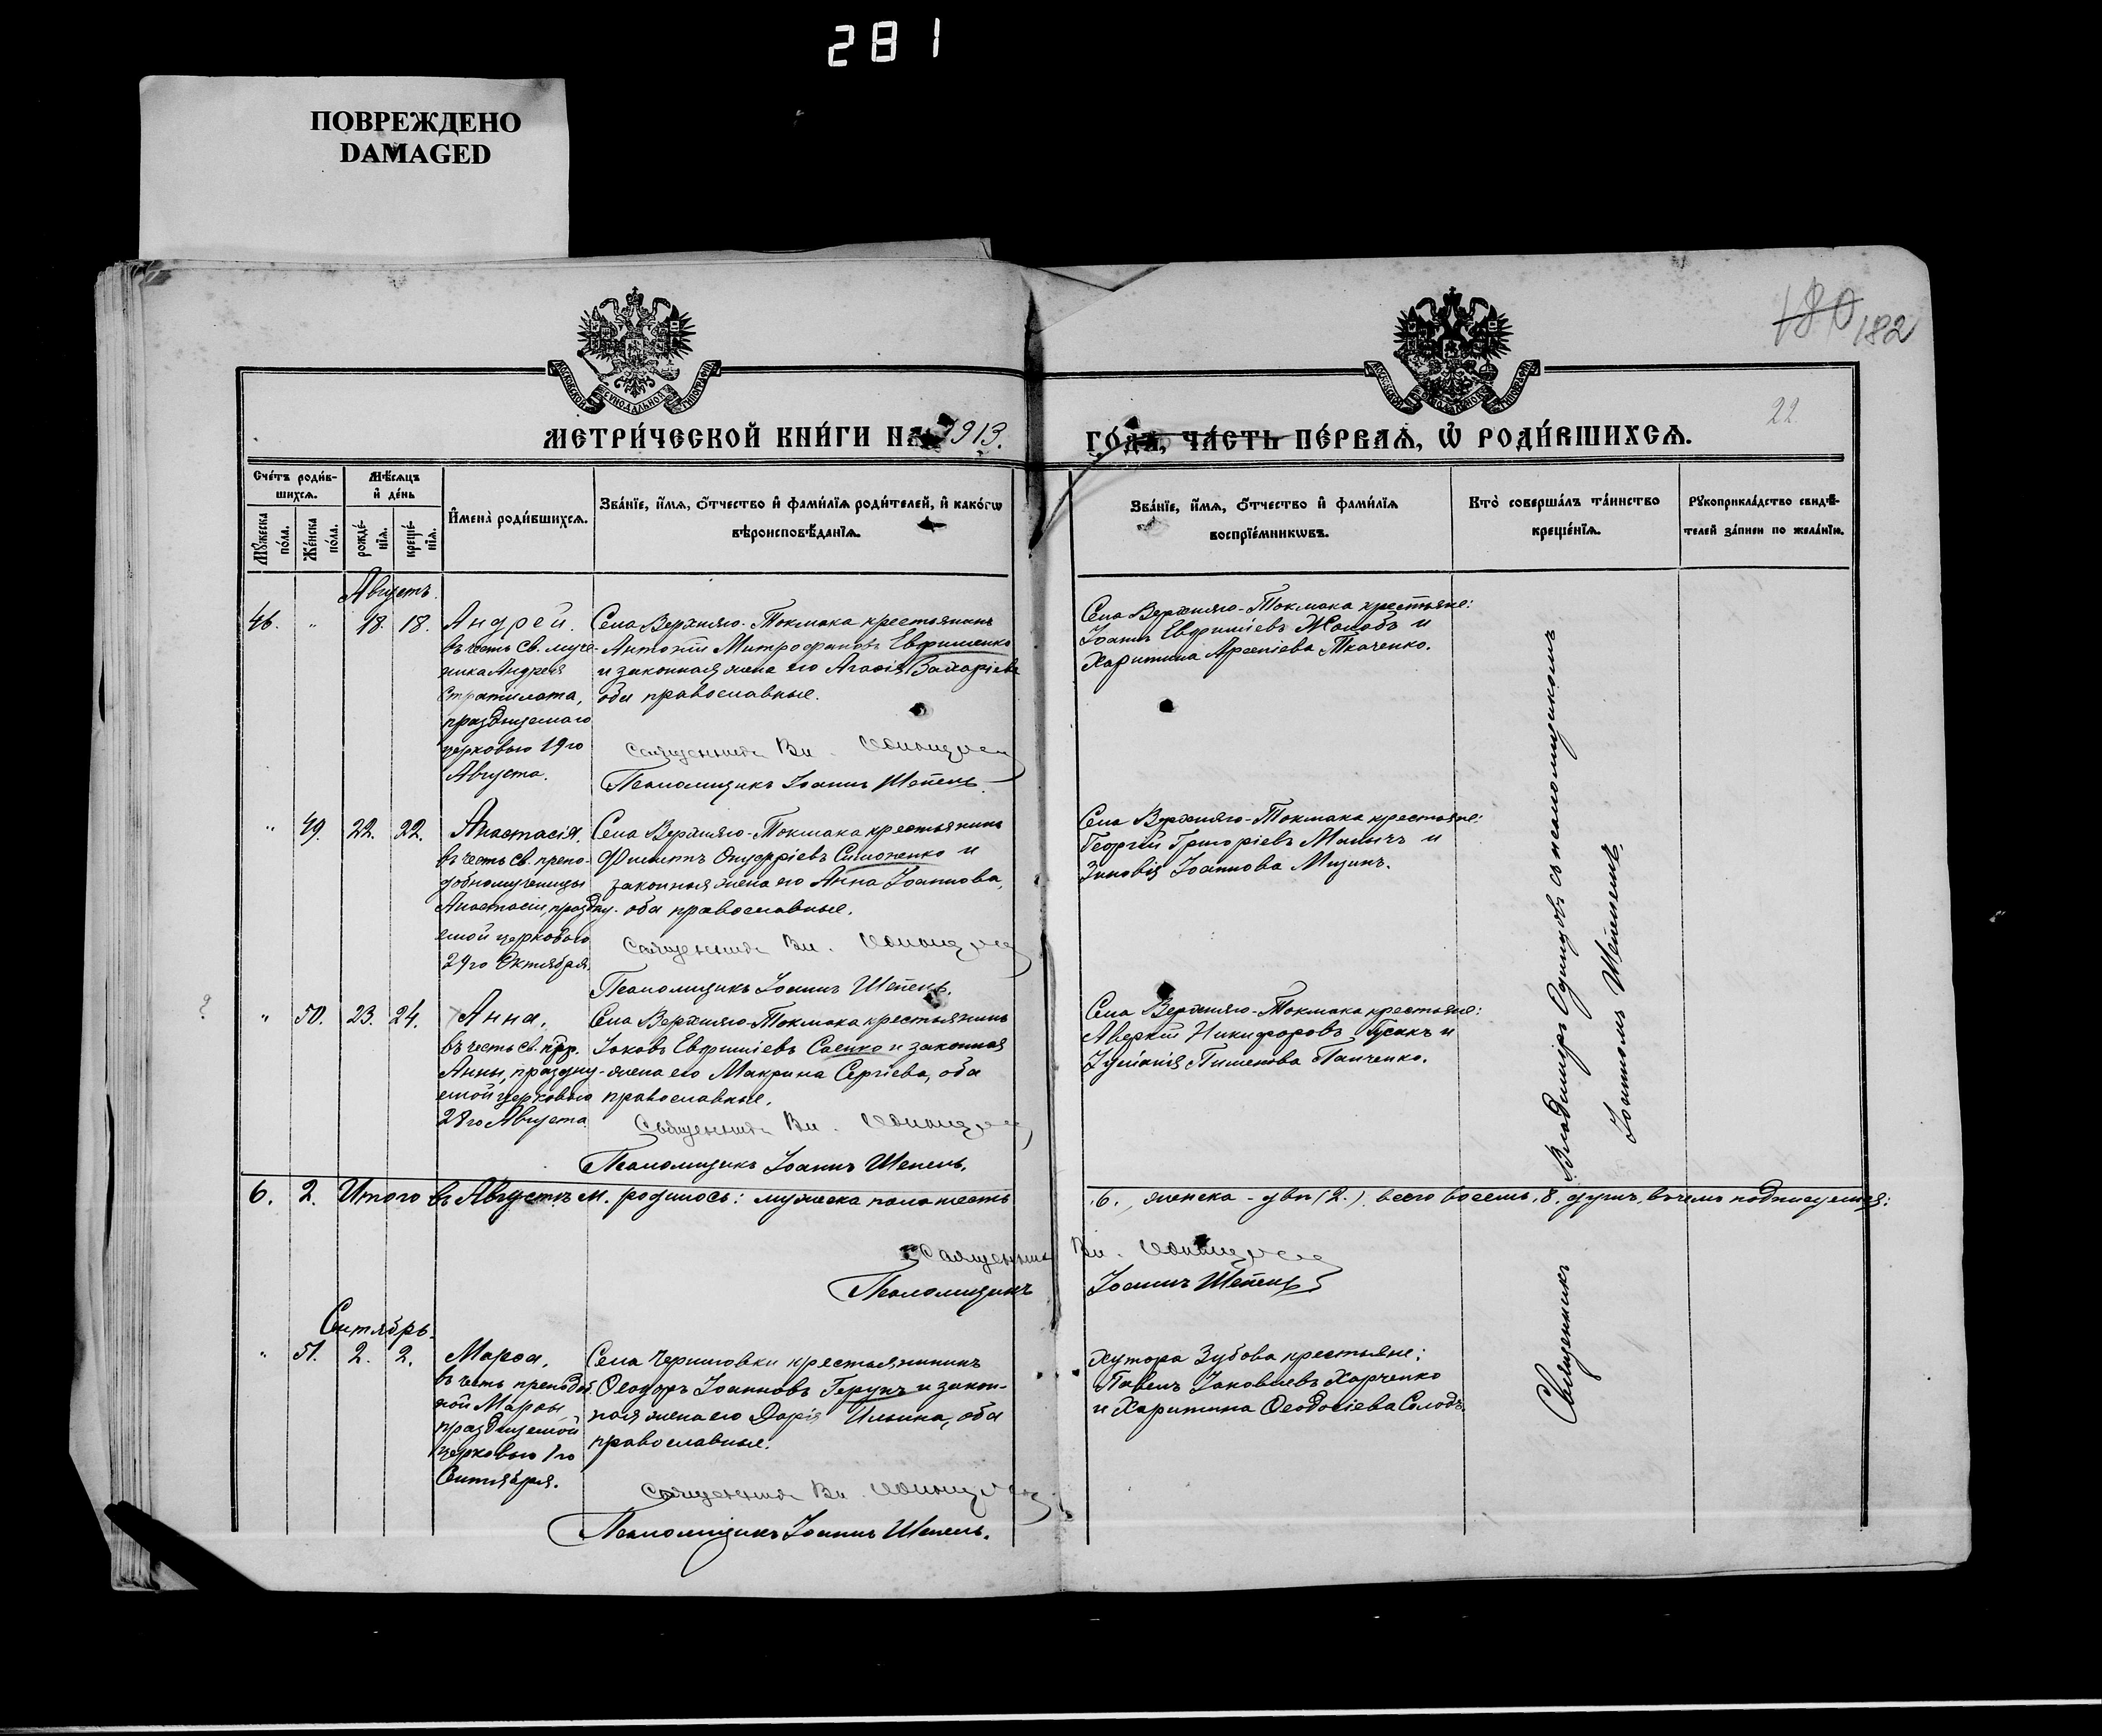 281
ПОВРЕЖДЕНО
DAMAGED
180 182
22
МОСКОВСКОЙ СУНОДАЛЬНОЙ ТИПОГРАФІИ
МЕТРИ́ЧЕСКОЙ КНИ́ГИ НА 1913.
ГО́ДА, ЧА́СТЬ ПЕ́РВАѦ, Ѡ҆ РОДИ́ВШИХСѦ.
Сче́тъ роди́в-
шихсѧ.
Мѣ́сѧцъ
и҆ де́нь
Мꙋ́жеска
по́ла.
Же́нска
по́ла.
рожде́-
нїѧ.
креще́-
нїѧ.
И҆мена̀ роди́вшихсѧ.
Зва́нїе, и҆́мѧ, ѻ҆́тчество и҆ фами́лїѧ роди́телей, и҆ како́гѡ
вѣроисповѣ́данїѧ.
Зва́нїе, и҆́мѧ, ѻ҆́тчество и҆ фами́лїѧ
воспрїе́мникѡвъ.
Кто̀ соверша́лъ та́инство
креще́нїѧ.
Рꙋкоприкла́дство свидѣ́-
телей за́писи по жела́нїю.
Августъ.
46. " 18. 18. Андрей.
въ честь св. муче-
ника Андрея
Стратилата,
празднуемаго
церковью 19го
Августа.
Села Верхняго-Токмака крестьянинъ
Антоній Митрофановъ Евфименко
и законная жена его Агафія Захаріева
оба православные.
Священникъ Вл. Одинцовъ
Псаломщикъ Іоаннъ Шепель.
Села Верхняго-Токмака крестьяне:
Іоаннъ Евфиміевъ Жолобъ и
Харитина Арсеніева Ткаченко.
" 49. 22. 22. Анастасія.
въ честь св. препо-
добномученицы
Анастасіи, праздну-
емой церковью
29го Октября.
Села Верхняго-Токмака крестьянинъ
Филиппъ Онуфріевъ Симоненко и
законная жена его Анна Іоаннова,
оба православные.
Священникъ Вл. Одинцовъ
Псаломщикъ Іоаннъ Шепель.
Села Верхняго-Токмака крестьяне:
Георгій Григоріевъ Маличъ и
Зиновія Іоаннова Мизинъ.
" 50. 23. 24. Анна,
въ честь св. прр.
Анны, праздну-
емой церковью
28го Августа
Села Верхняго-Токмака крестьянинъ
Іаковъ Евфиміевъ Саенко и законная
жена его Макрина Сергіева, оба
православные.
Священникъ Вл. Одинцовъ
Псаломщикъ Іоаннъ Шепель.
Села Верхняго-Токмака крестьяне:
Аверкій Никифоровъ Гусакъ и
Іуліанія Пименова Панченко.
Владиміръ Одинцовъ съ псаломщикомъ
Іоанномъ Шепелемъ.
6. 2. Итого въ Августѣ м. родилось: мужеска пола шесть
6., женска - двѣ (2.), всего восемь, 8, душъ, въ чемъ подписуемся:
Священникъ Вл. Одинцовъ
Псаломщикъ Іоаннъ Шепель
Сентябрь.
" 51. 2. 2. Марѳа,
въ честь преподоб-
ной Марѳы,
празднуемой
церковью 1го
Сентября.
Села Черниговки крестьянинъ
Ѳеодоръ Іоанновъ Герунъ и закон-
ная жена его Дарія Ильина, оба
православные.
Священникъ Вл. Одинцовъ
Псаломщикъ Іоаннъ Шепель.
Хутора Зубова крестьяне:
Павелъ Іаковлевъ Харченко
и Харитина Ѳеодосіева Солодъ.
Священникъ